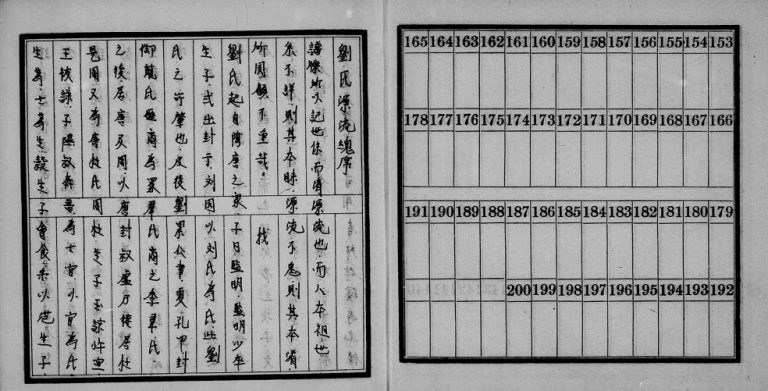 劉氏源流總序
譜牒所以記世系而有源流也而人本祖也世
系不詳則其本昧源流不悉則其本有
所關顧不重哉
劉氏起自陶唐之衆子曰監明監明少卒
生子式出封于刘因以刘氏為氏此劉
氏之所肇也夏後劉累代事夏孔甲封
御龍氏歷商為豕韋氏商之季韋氏
之後居唐及周以唐封叔虞乃徙居杜
是周又為唐杜氏周杜生子
王後隰叔奔晉為士官以官為氏
生子會食采以范生子
165 164 163 162 161 160 159 158 157 156 155 154 153
178 177 176 175 174 173 172 171 170 169 168 167 166
191 190 189 188 187 186 185 184 183 182 181 180 179
200 199 198 197 196 195 194 193 192